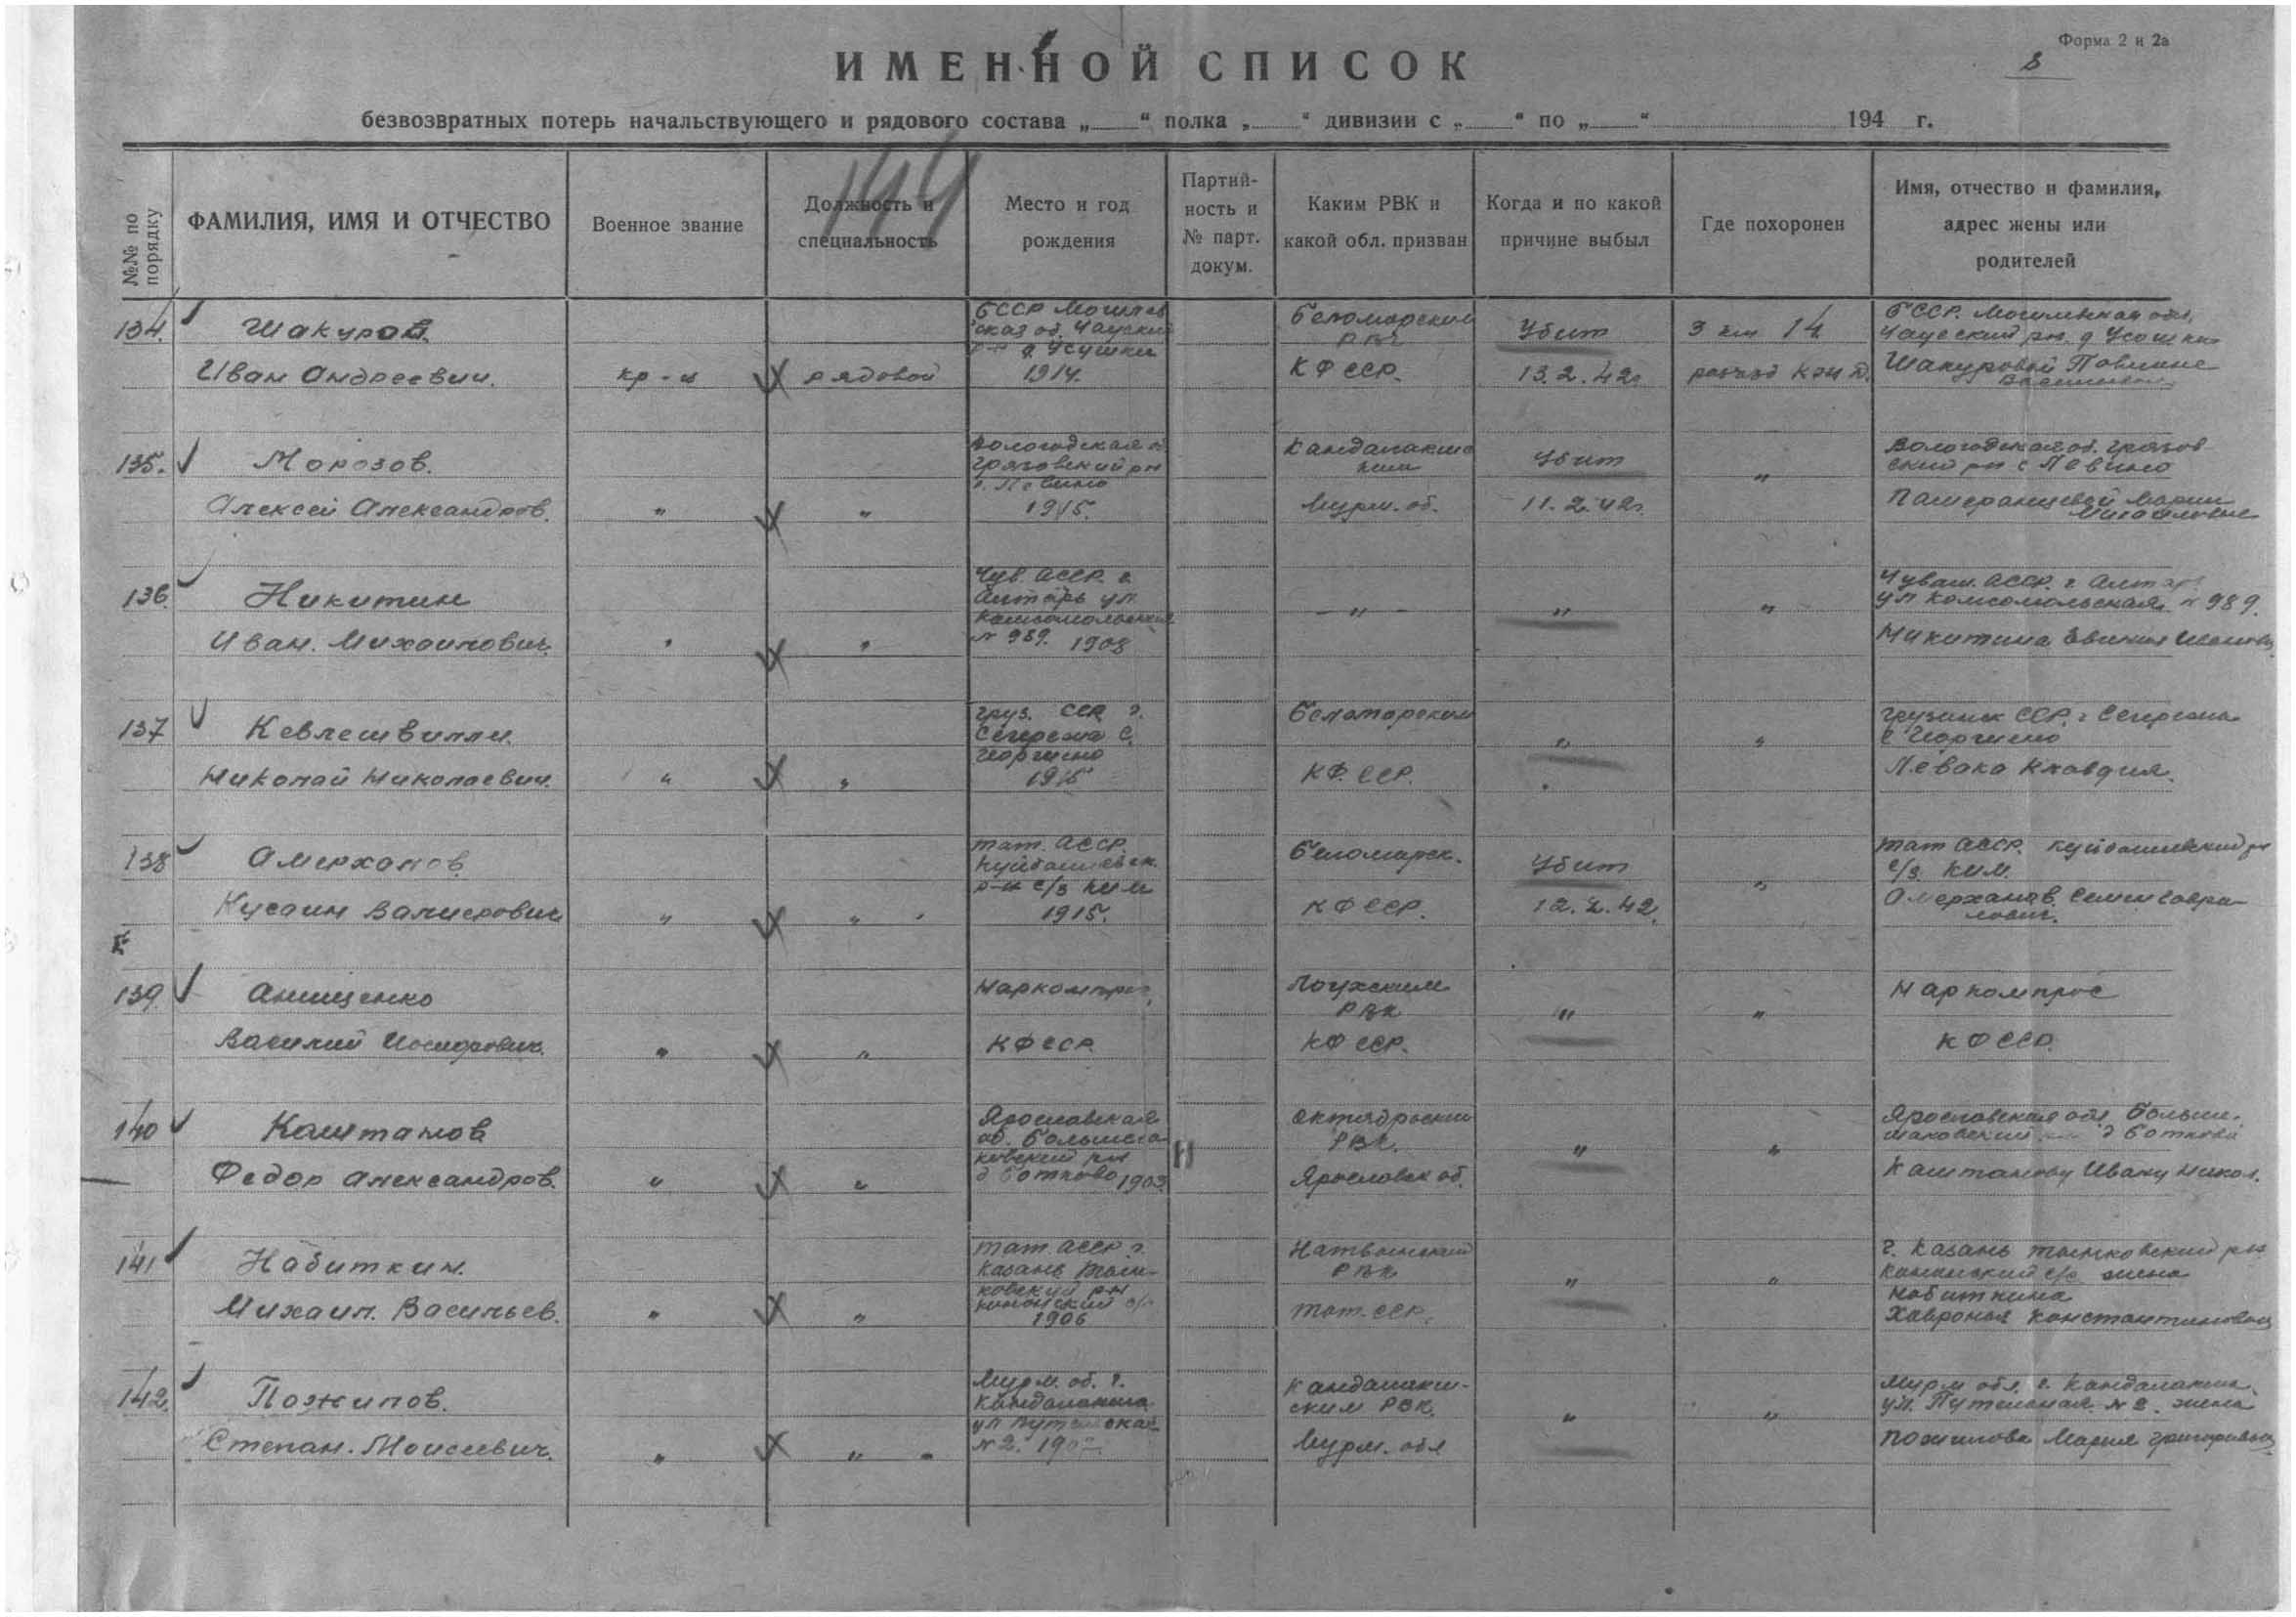 Форма 2 и 2а
8
ИМЕННОЙ СПИСОК
безвозвратных потерь начальствующего и рядового состава „ “ полка „ “ дивизии с „ “ по „ “ 194 г.
144
№№ по порядку
ФАМИЛИЯ, ИМЯ И ОТЧЕСТВО
Военное звание
Должность и специальность
Место и год рождения
Партий-
ность и
№ парт.
докум.
Каким РВК и
какой обл. призван
Когда и по какой
причине выбыл
Где похоронен
Имя, отчество и фамилия,
адрес жены или
родителей
134. Шакуров.
Иван Андреевич.
кр-ц
рядовой
БССР Могилев
ская об. Чауский
р-н д Усушки
1914.
Беломорским
РВК
КФССР.
Убит
13.2.42г
3 км 14
разъезд Кжд.
БССР. Могилевская обл,
Чаусский рн. д
Шакуровой
135. Морозов.
Алексей Александров.
"
"
Вологодская о
Грязовский рн
с. Левино
1915.
Кандалакш
ским
Мурм. об.
Убит
11.2.42г.
"
Вологодская об. Грязов
ский рн с Левино
Марии
Михайловне
136. Никитин
Иван. Михайлович.
"
"
Чув. АССР. г.
Алтарь ул
Комсомольская
№ 989. 1908
— " —
"
"
Чуваш. АССР. г
ул Комсомольская № 989.
Никитина
137 Кевлешвилли.
Николай Николаевич.
"
"
Груз. ССР г.
с.
1915
Беломорским
КФ.ССР.
"
"
Грузинск ССР. г
с
Клавдия.
138 Амерханов.
Кусаин
"
"
Тат. АССР.
Куйбышевск.
р-н с/з КИМ
1915.
Беломорск.
КФССР.
Убит
12.2.42.
"
Тат АССР. Куйбышевский рн
с/з. КИМ.
Амерханов
139. Анищенко
Василий
"
"
Наркомпрос,
КФССР
Лоухским
РВК
КФ ССР.
"
"
Наркомпрос
КФССР.
140 Каштанов
Федор Александров.
"
"
Ярославская
об.
ковский рн
д Ботково 1903
Н
Октябрьским
РВК.
Ярославск об.
"
"
Ярославская обл.
д
Каштанову Ивану Никол.
141 Набиткин.
Михаил. Васильев.
"
"
Тат. АССР г.
Казань
ковский рн
1906
РВК
Тат. ССР.
"
"
г. Казань рн
с/с жена
Набиткина
Константиновна
142. Пожилов.
Степан. Моисеевич.
"
"
Мурм. об. г.
Кандалакша
ул
№ 2.
Кандалакш-
ским РВК
Мурм. обл
"
"
Мурм обл. г. Кандалакша,
ул. № 2. жена
Пожилова Мария Григорьевна